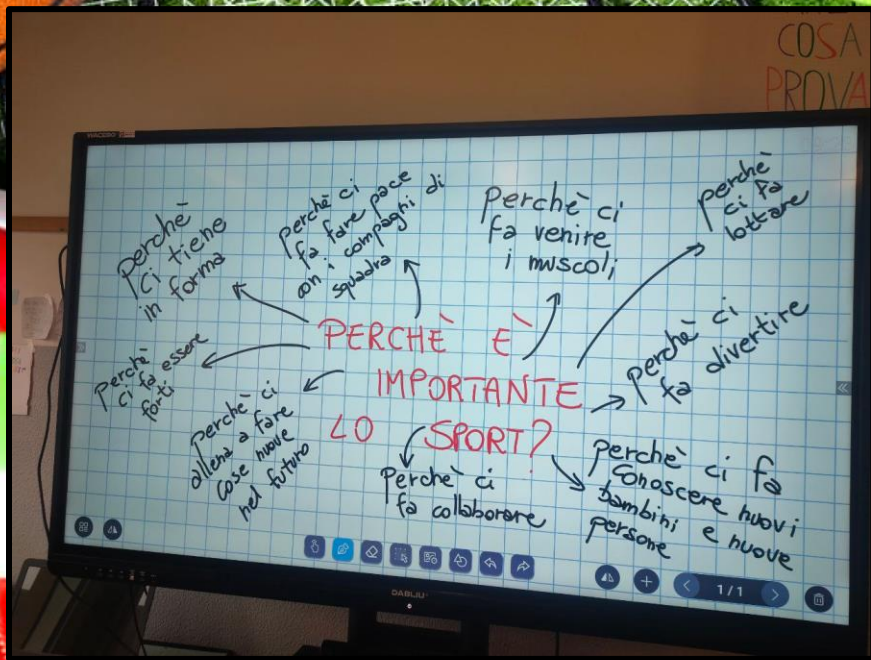 COSA
PROVA
PERCHÈ È
IMPORTANTE
LO SPORT?
perchè
ci tiene
in forma
perchè ci
fa fare pace
con i compagni di
squadra
perchè ci
fa venire
i muscoli
perchè
ci fa
lottare
perchè ci
fa divertire
perchè ci fa
conoscere nuovi
bambini e nuove
persone
perchè ci
fa collaborare
perchè ci
allena a fare
cose nuove
nel futuro
perchè
ci fa essere
forti
1/1
DABLIU